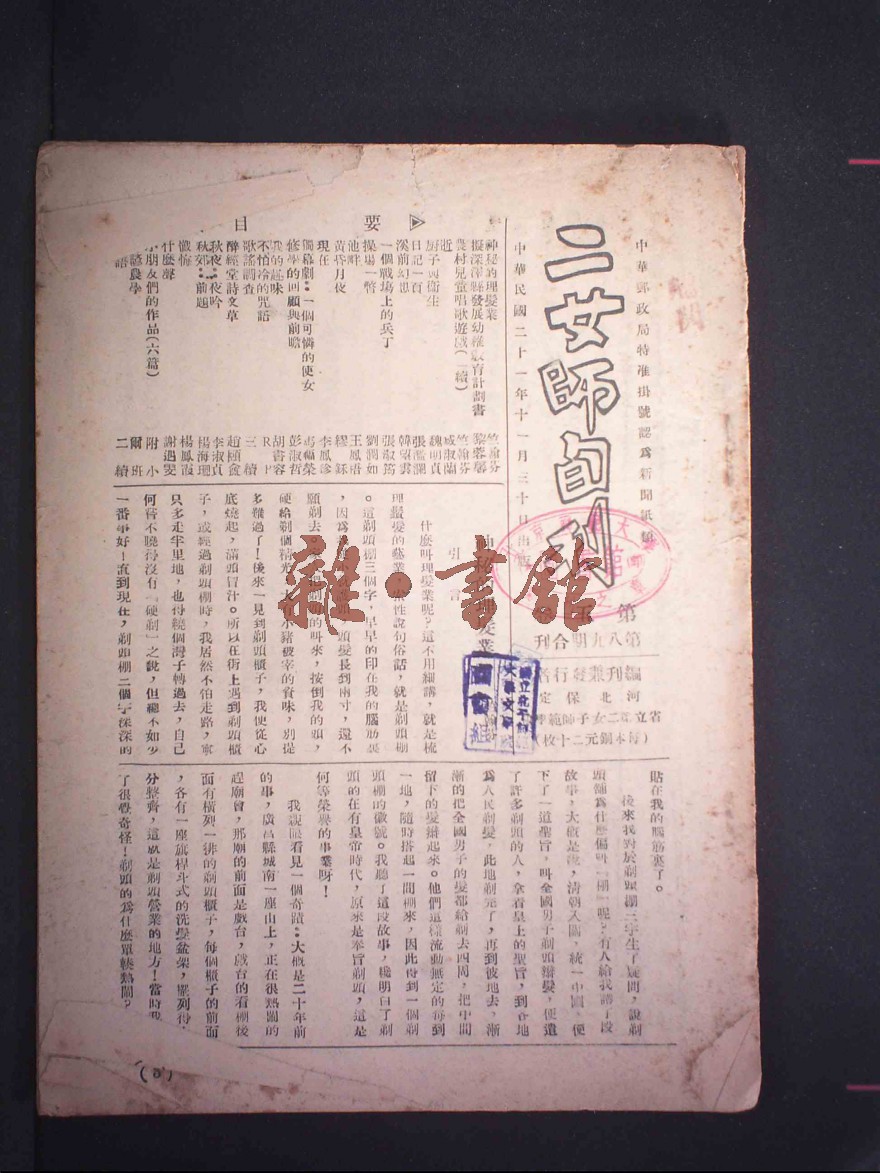 中華郵政局特准掛號認爲新聞紙類
二女師旬刊
中華民國二十一年十一月三十日出版
第
第八九期合刊
編刊兼發行者
河北保定
省立第二女子師範學
(每本銅元二十枚)
要目
神秘的理髮業
擬深澤縣發展幼稚教育計劃書
農村兒童唱歌遊戲(續)
近
廚子與衛生
日記一頁
溪前幻想
一個戰場上的兵丁
操場一瞥
池畔
黃昏月夜
現在
獨幕劇：一個可憐的使女
修學的回顧與前瞻
我的趣味
不怕冷的咒語
歌謠調查
醉經堂詩文草
秋夜：夜吟
秋郊：前題
懺悔
什麽聲
小朋友們的作品(六篇)
諺農學
語
竺翰芬
黎蓉馨
竺翰芬
成淑蘭
魏明貞
張蘊瀾
韓望雲
張淑筠
劉潤如
王鳳梧
繆穌
李鳳珍
馬福榮
彭淑哲
胡書容
R P
三續
趙楨鑫
李淑貞
楊海珊
楊鳳霞
謝遇雯
附小
爾班
二續
引言
什麼叫理髮業呢？這不用細講，就是梳
理鬚髮的藝業，索性說句俗話，就是剃頭棚
。這剃頭棚三個字，早早的印在我的腦筋裏
，因爲我從小就 頭，頭髮長到兩寸，還不
願剃去。家 把剃頭的叫來，按倒我的頭，
硬給剃個精光，大有小豬被宰的貲味，別提
多難過了！後來一見到剃頭櫃子，我便從心
底燒起，滿頭冒汁。所以在街上遇到剃頭櫃
子，或經過剃頭棚時，我居然不怕走路，寧
只多走半里地，也得繞個灣子轉過去，自己
何嘗不曉得沒有「硬剃」之說，但總不如少
一番事好！直到現在，剃頭棚三個字深深的
貼在我的腦筋裏了。
後來我對於剃頭棚三字生了疑問，說剃
頭舖爲什麼偏叫「棚」呢？有人給我講了段
故事，大概是說，清朝入關，統一中國，便
下了一道聖旨，叫全國男子剃頭辮髮，便遣
了許多剃頭的人，拿着皇上的聖旨，到各地
爲人民剃髮，此地剃完了，再到彼地去，漸
漸的把全國男子的髮都給剃去四周，把中間
留下的髮辮起來。他們這樣流動無定的每到
一地，隨時搭起一間棚來，因此得到一個剃
頭棚的徽號。我聽了這段故事，纔明白了剃
頭的在有皇帝時代，原來是奉旨剃頭，這是
何等榮興的事業呀！
我親眼看見一個奇蹟：大概是二十年前
的事，廣昌縣城南一座山上，正在很熱鬧的
趕廟會，那廟的前面是戲台，戲台的看棚後
面有橫列一排的剃頭櫃子，每個櫃子的前面
，各有一座旗桿斗式的洗髮盆架，羅列得
分整齊，這就是剃頭營業的地方！當時我
了很覺奇怪！剃頭的爲什麼單揀熱鬧？
雜·書館